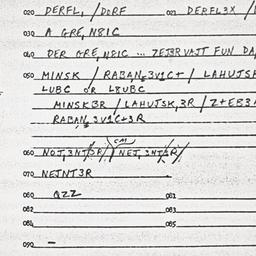 020 DERFL, /DORF 021 DERFL3X /
030 A GRE, N8IC
040 DER GRE, NDIC ... ZEJ3RVAJT FUN DA,
050 MINSK / RABAN, 3V1C+ / LAHUJSK
LUBC OR L8UBC
MINSK3R / LAHUJSK, 3R / Z+EB3
RABAN, 3V1C+3R
060 NOJ, 3NJ3R/ CM / NEJ, 3NJ3R/
070 NEJNT3R
080 QZZ 081
082 083
084 085
090 —